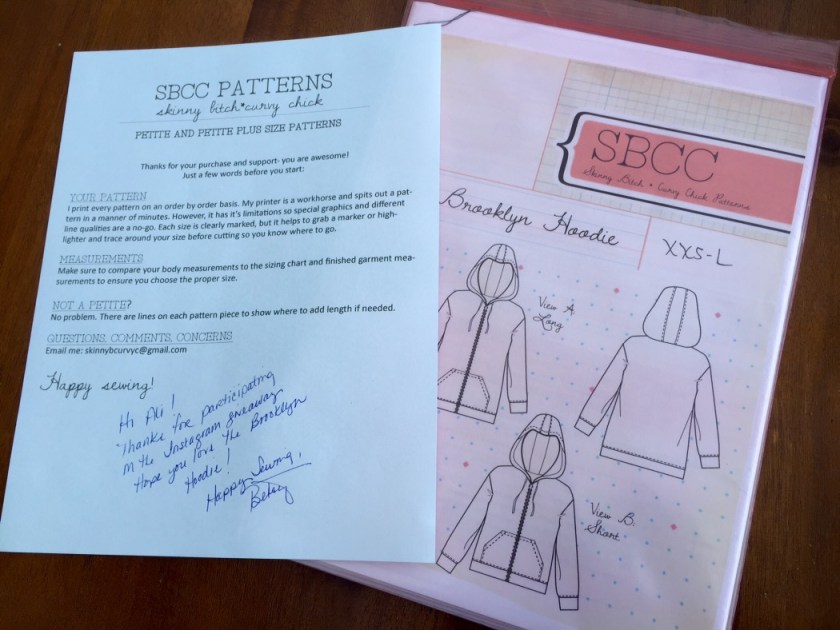 SBCC PATTERNS
skinny bitch*curvy chick
PETITE AND PETITE PLUS SIZE PATTERNS
Thanks for your purchase and support- you are awesome!
Just a few words before you start:
YOUR PATTERN
I print every pattern on an order by order basis. My printer is a workhorse and spits out a pat-
tern in a manner of minutes. However, it has it's limitations so special graphics and different
line qualities are a no-go. Each size is clearly marked, but it helps to grab a marker or high-
lighter and trace around your size before cutting so you know where to go.
MEASUREMENTS
Make sure to compare your body measurements to the sizing chart and finished garment mea-
surements to ensure you choose the proper size.
NOT A PETITE?
No problem. There are lines on each pattern piece to show where to add length if needed.
QUESTIONS, COMMENTS, CONCERNS
Email me: skinnybcurvyc@gmail.com
Happy sewing!
Hi Ali!
Thanks for participating
in the Instagram giveaway
Hope you love the Brooklyn
Hoodie!
Happy Sewing,
Betsy
SBCC
Skinny Bitch • Curvy Chick Patterns
Brooklyn Hoodie
XXS-L
View A
Long
View B.
"Short"